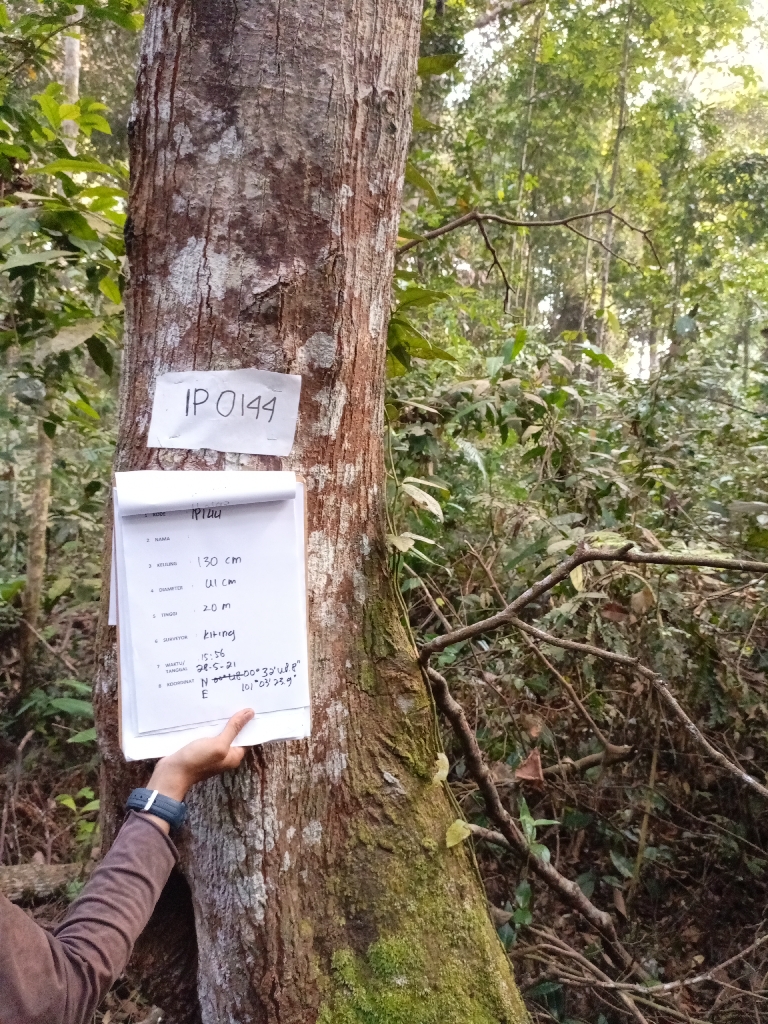 IP 0144
1 KODE IP144
2 NAMA
3 KELILING 130 cm
4 DIAMETER 41 cm
5 TINGGI 20 m
6 SURVEYOR Kiting
7 WAKTU/ TANGGAL 15:56
28-5-21
8 KOORDINAT N 00° 32' 48.8"
E 101° 03' 23.9"